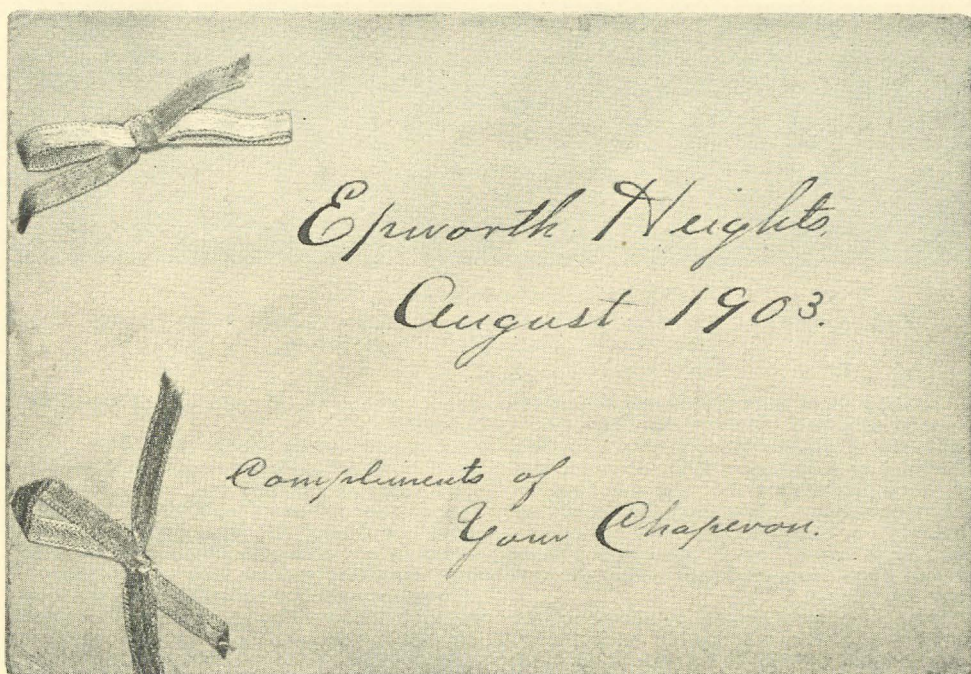 Epworth Heights,
August 1903.
Compliments of
Your Chaperon.